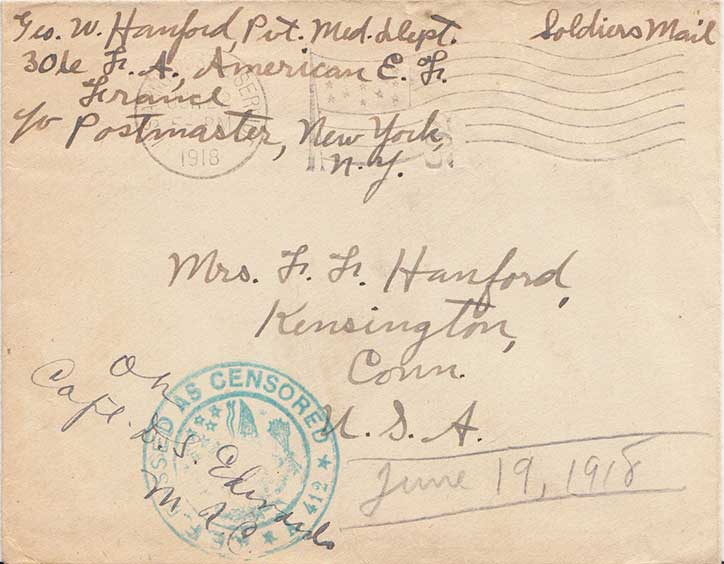 Geo. W. Hanford, Pvt. Med. Dept. Soldiers Mail
306 F. A., American E. F.
France
c/o Postmaster, New York,
N. Y.
1918
Mrs. F. F. Hanford,
Kensington,
Conn.
U. S. A.
OK
Capt. Edwards
M R C.
PASSED AS CENSORED
A.E.F. A 412
June 19, 1918